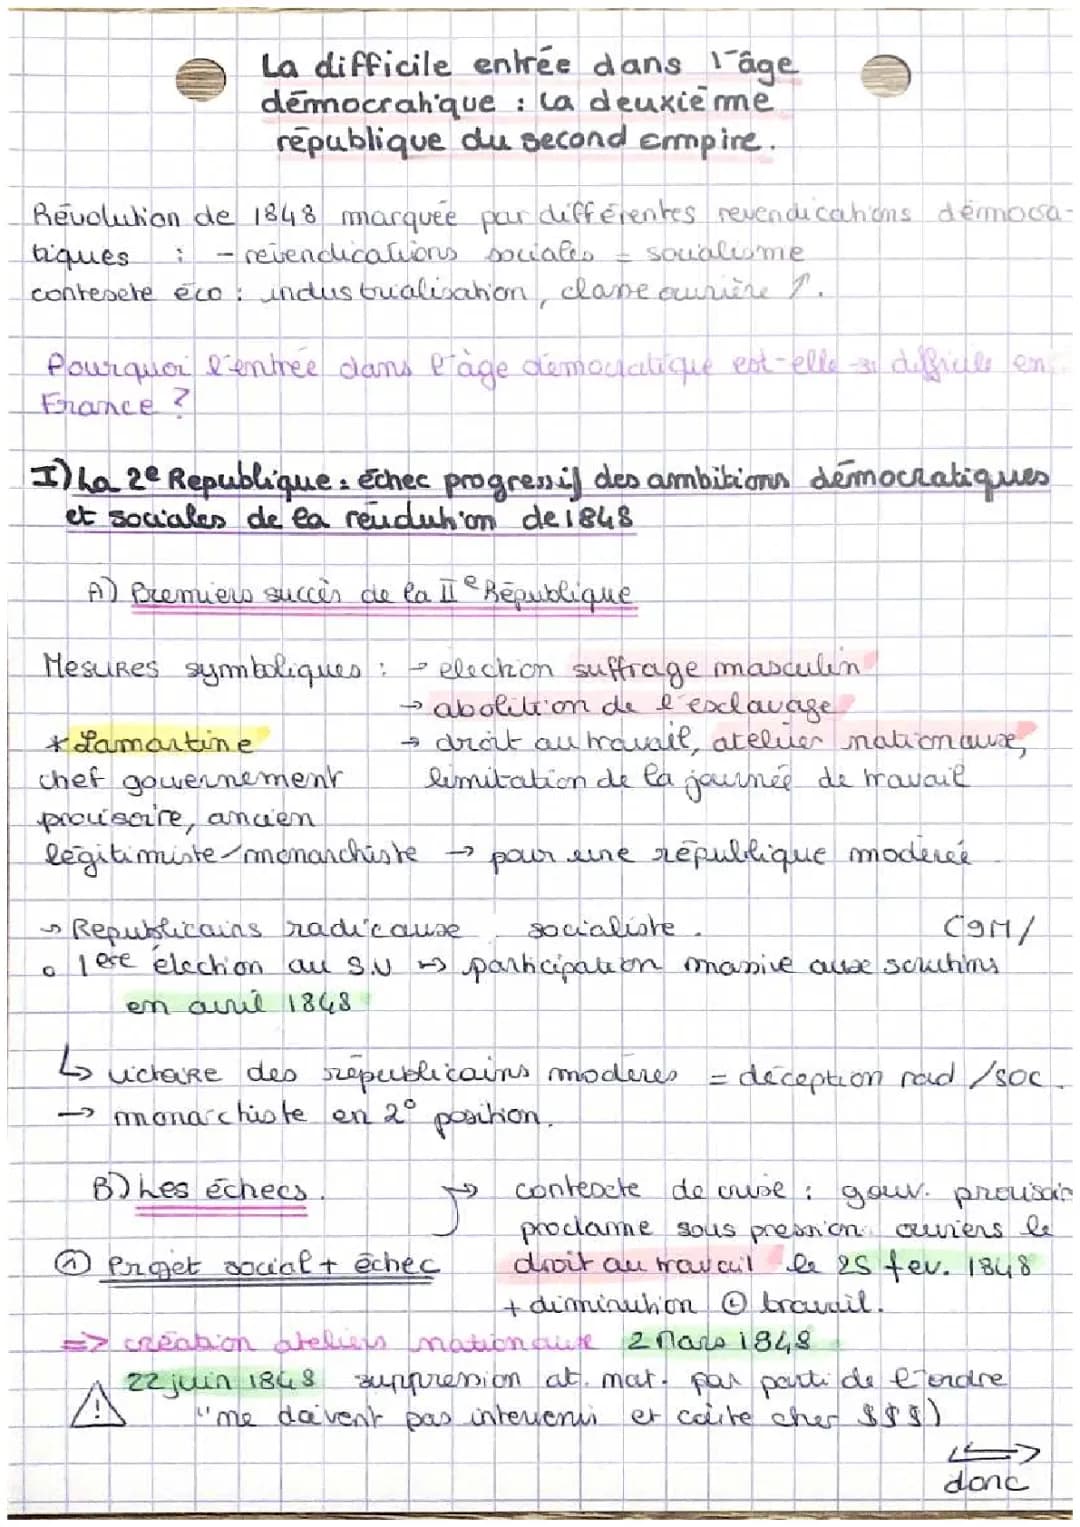 La difficile entrée dans l'âge
démocratique : la deuxième
république du second Empire.
Révolution de 1848 marquée par différentes revendications démocra-
tiques : - revendications sociales = socialisme
contexte éco : industrialisation, classe ouvrière ↑.
Pourquoi l'entrée dans l'âge démocratique est-elle si difficile en
France ?
I) La 2e Republique : échec progressif des ambitions démocratiques
et sociales de la révolution de 1848
A) Premiers succès de la IIe République
Mesures symboliques : → election suffrage masculin
→ abolition de l'esclavage
* Lamartine → droit au travail, atelier nationaux,
chef gouvernement limitation de la journée de travail
provisoire, ancien
légitimiste/monarchiste → pour une république modérée
→ Republicains radicaux socialiste. (9M/
o 1ère élection au S.U → participation massive aux scrutins
en avril 1848
↳ victoire des républicains modérés = déception rad/soc.
→ monarchiste en 2° position.
B) Les échecs. → contexte de crise : gouv. provisoir
proclame sous pression ouvriers le
① Projet social + échec droit au travail le 25 fev. 1848
+ diminution ⊖ travail.
=> création ateliers nationaux 2 Mars 1848
22 juin 1848 suppression at. nat. par parti de l'ordre
"ne doivent pas intervenir et coûte cher $$$)
donc